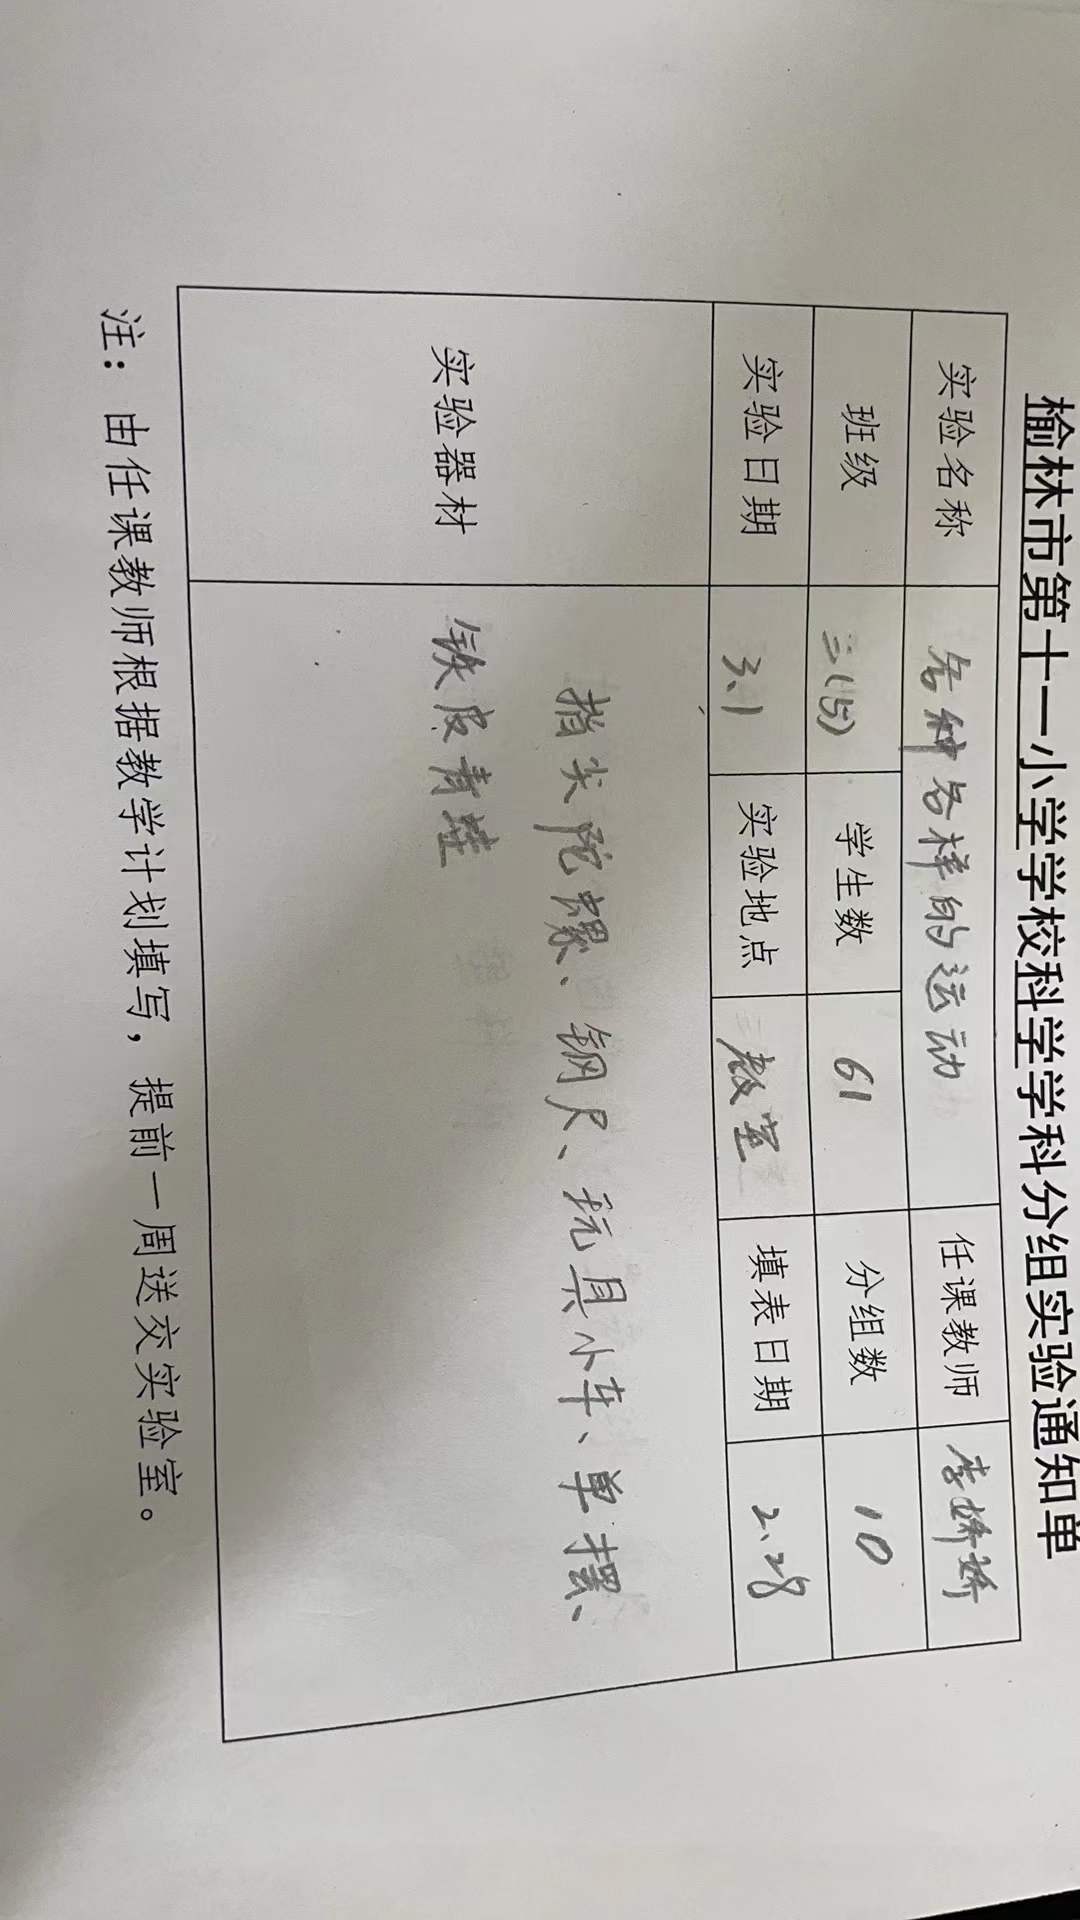 榆林市第十一小学学校科学学科分组实验通知单
实验名称 各种各样的运动 任课教师 李娇娇
班级 三(5) 学生数 61 分组数 10
实验日期 3、1 实验地点 教室 填表日期 2、28
实验器材 指尖陀螺、钢尺、玩具小车、单摆、
铁皮青蛙
注：由任课教师根据教学计划填写，提前一周送交实验室。